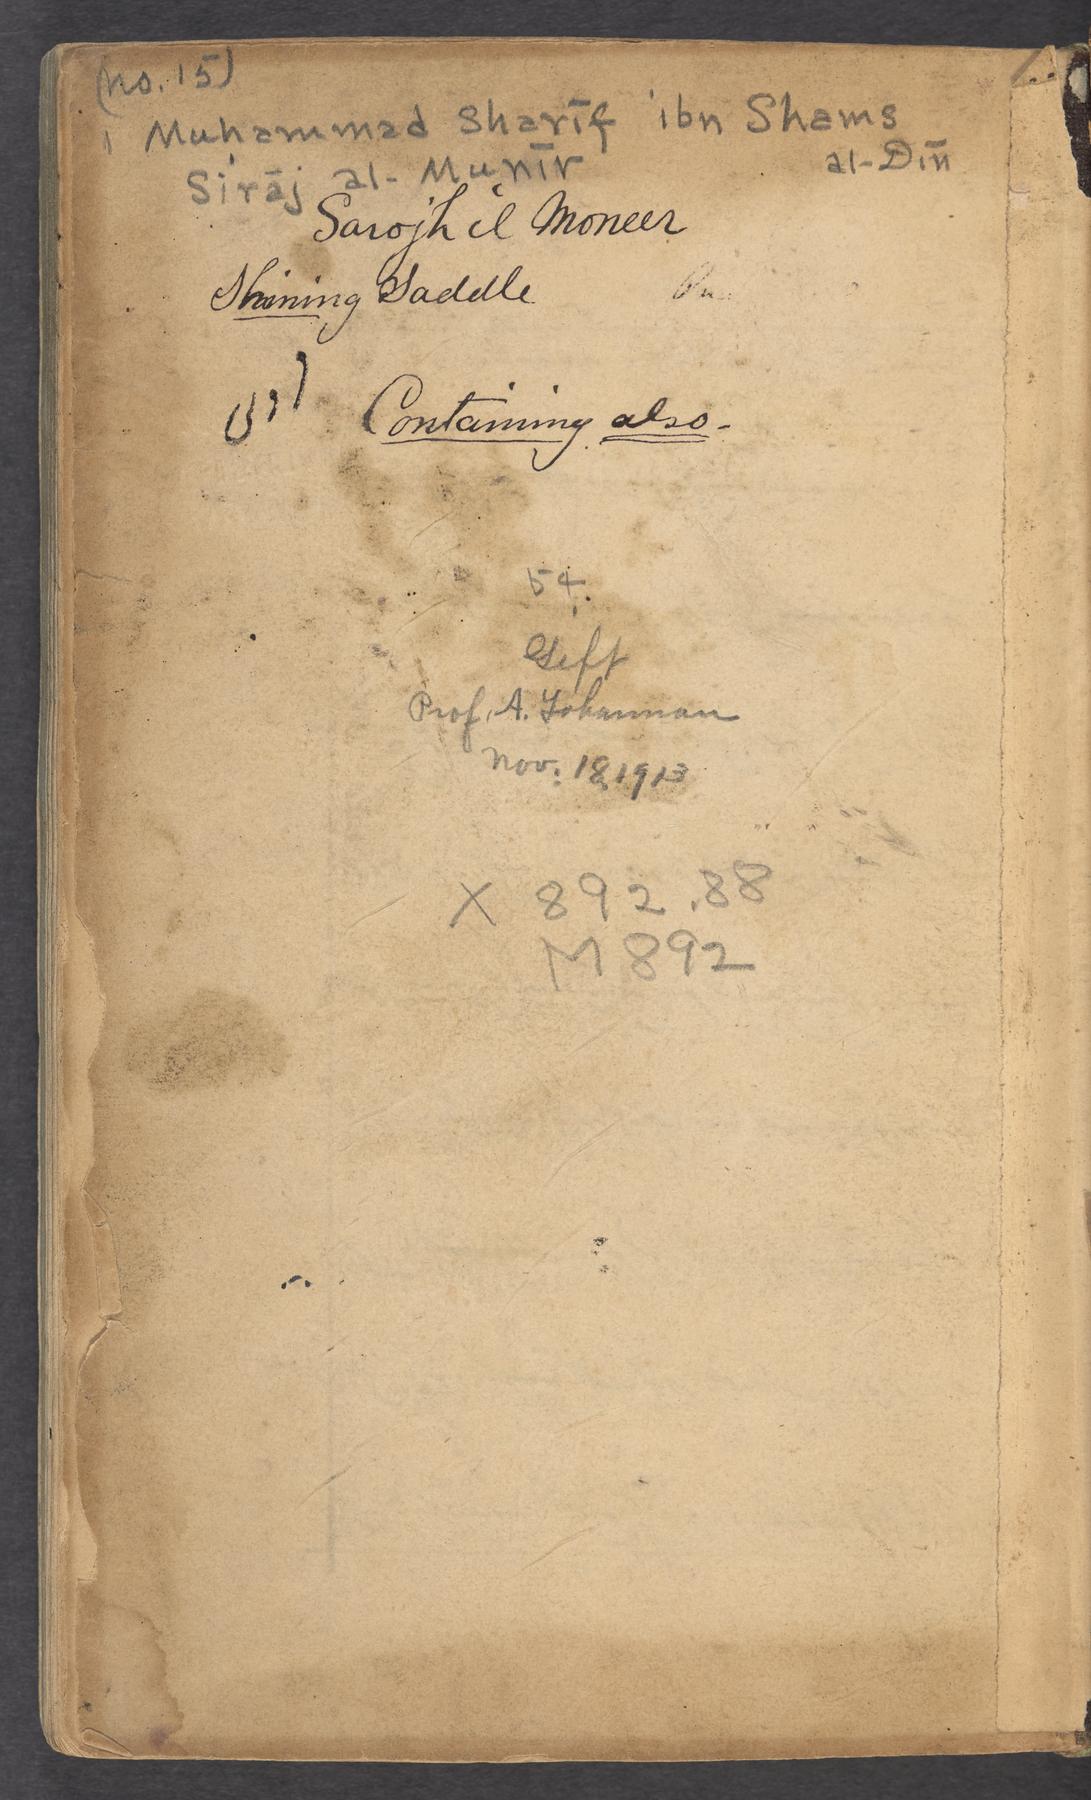 (no. 15)
1 Muhammad Sharīf ibn Shams al-Dīn
Sirāj al-Munīr
Sarojh il Moneer
Shining Saddle
Containing also -
54.
Gift
Prof. A. Yohannan
Nov. 18, 1913
X 892.88
M 892